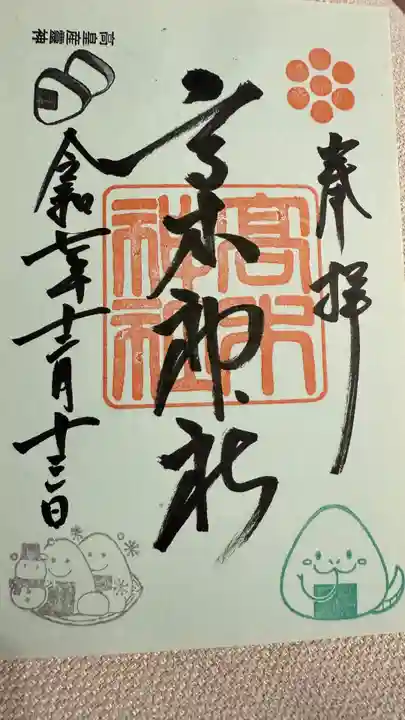 奉拝
高木神社
高木神社
令和七年十二月十三日
高皇産靈神